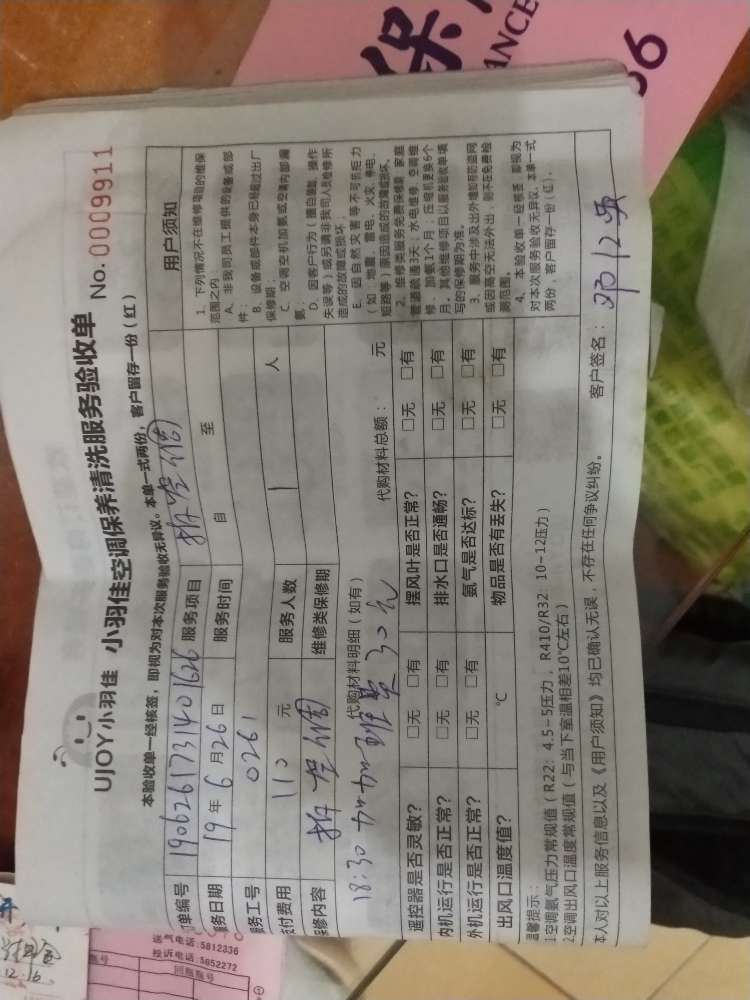 UJOY小羽佳 小羽佳空调保养清洗服务验收单 No. 0009911
本验收单一经核签，即视为对本次服务验收无异议。本单一式两份，客户留存一份（红）
单编号 1906261731401626 服务项目 拆空调
服务日期 19 年 6 月 26 日 服务时间 至
服务工号 0261
支付费用 110 元 服务人数 1 人
保修内容 拆空调 维修类保修期
代购材料明细（如有） 代购材料总额： 元
18:30加加班费30元
遥控器是否灵敏？ □无 □有 摆风叶是否正常？ □无 □有
内机运行是否正常？ □无 □有 排水口是否通畅？ □无 □有
外机运行是否正常？ □无 □有 氨气是否达标？ □无 □有
出风口温度值？ ℃ 物品是否有丢失？ □无 □有
用户须知
1、下列情况不在维修项目的维保
范围之内：
A、非我司员工提供的设备或部
件；
B、设备或部件本身已经超过出厂
保修期；
C、空调空机加氨或空调内部漏
氨；
D、因客户行为（擅自移动、操作
失误等）或另请非我司人员检修所
造成的故障或损坏；
E、因自然灾害等不可抗拒力
（如：地震、雷电、火灾、停电、
短路等）原因造成的故障或损坏。
2、维修类服务免费保修期：家庭
管道疏通3天；水电维修、空调维
修、加氨1个月；压缩机更换6个
月，其他维修项目以服务验收单填
写的保修期为准。
3、服务中涉及出外墙如有防盗网
或因高空无法外出，则不在免费检
测范围。
4、本验收单一经核签，即视为
对本次服务验收无异议。本单一式
两份，客户留存一份（红）。
温馨提示：
1空调氨气压力常规值（R22：4.5-5压力，R410/R32 10-12压力）
2空调出风口温度常规值（与当下室温相差10℃左右）
本人对以上服务信息以及《用户须知》均已确认无误，不存在任何争议纠纷。 客户签名：
保
ANCE
36
送气电话:5812336
投诉电话:5652272
瓶号 回瓶瓶号
12.16